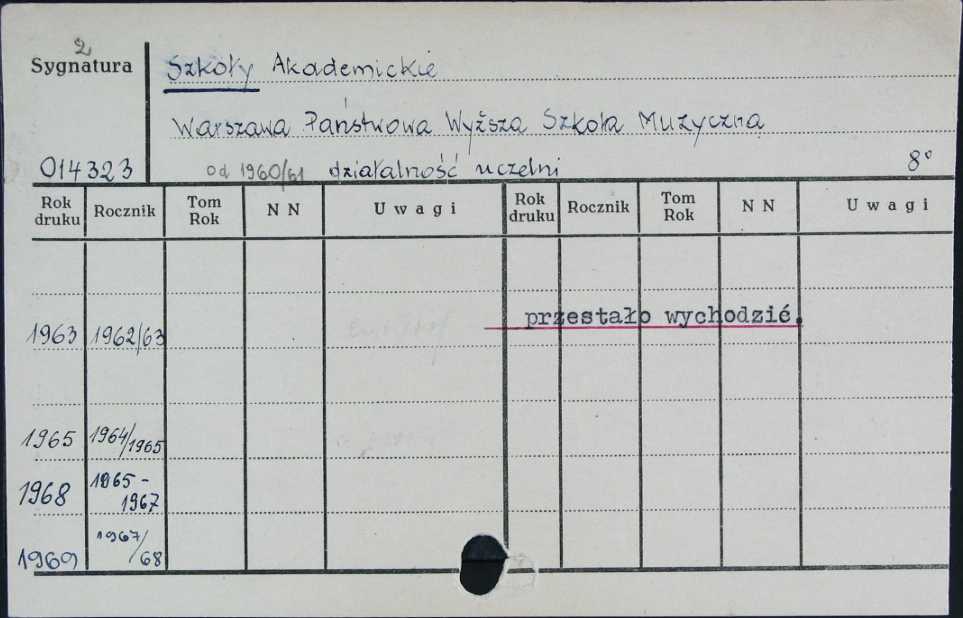 2
Sygnatura
Szkoły Akademickie
Warszawa Państwowa Wyższa Szkoła Muzyczna
014323 od 1960/61 działalność uczelni 8°
Rok druku Rocznik Tom Rok N N Uwagi Rok druku Rocznik Tom Rok N N Uwagi
przestało wychodzić.
1963 1962/63
1965 1964/1965
1968 1965-1967
1969 1967/68